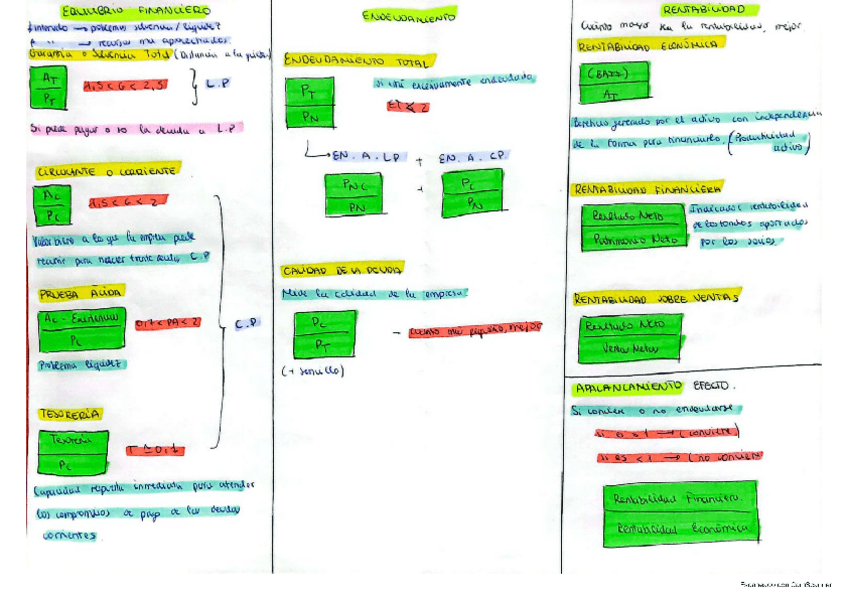 EQUILIBRIO FINANCIERO
↓ intervalo → problemas solvencia / liquidez
→ recursos mal aprovechados
Garantía o Solvencia Total (Distancia a la quiebra)
AT
PT
1,5 < G < 2,5
L.P
Si puede pagar o no la deuda a L.P
CIRCULANTE O CORRIENTE
AC
PC
1,5 < G < 2
a lo que la empresa puede
recurrir para hacer frente deuda C.P
PRUEBA ÁCIDA
AC - Existencias
PC
0,7 < PA < 2
C.P
Problema liquidez
TESORERÍA
Tesorería
PC
T ≃ 0,7
Capacidad repuesta inmediata para atender
los compromisos de pago de las deudas
corrientes
ENDEUDAMIENTO
ENDEUDAMIENTO TOTAL
PT
PN
Si está excesivamente endeudada
ET 2
→ EN. A. LP + EN. A. CP
PNC
PN
+
PC
PN
CALIDAD DE LA DEUDA
Mide la calidad de la empresa
PC
PT
- cuanto más pequeño, mejor
(+ sencillo)
RENTABILIDAD
Cuánto mayor sea la rentabilidad, mejor.
RENTABILIDAD ECONÓMICA
(BAII)
AT
Beneficio generado por el activo con independencia
de la forma para financiarlo. (Productividad
activo)
RENTABILIDAD FINANCIERA
Resultado Neto
Patrimonio Neto
Indicador rentabilidad
de los fondos aportados
por los socios
RENTABILIDAD SOBRE VENTAS
Resultado Neto
Ventas Netas
APALANCAMIENTO EFECTO.
Si conviene o no endeudarse
→ (conviene)
si es < 1 → (no conviene
Rentabilidad Financiera
Rentabilidad Económica